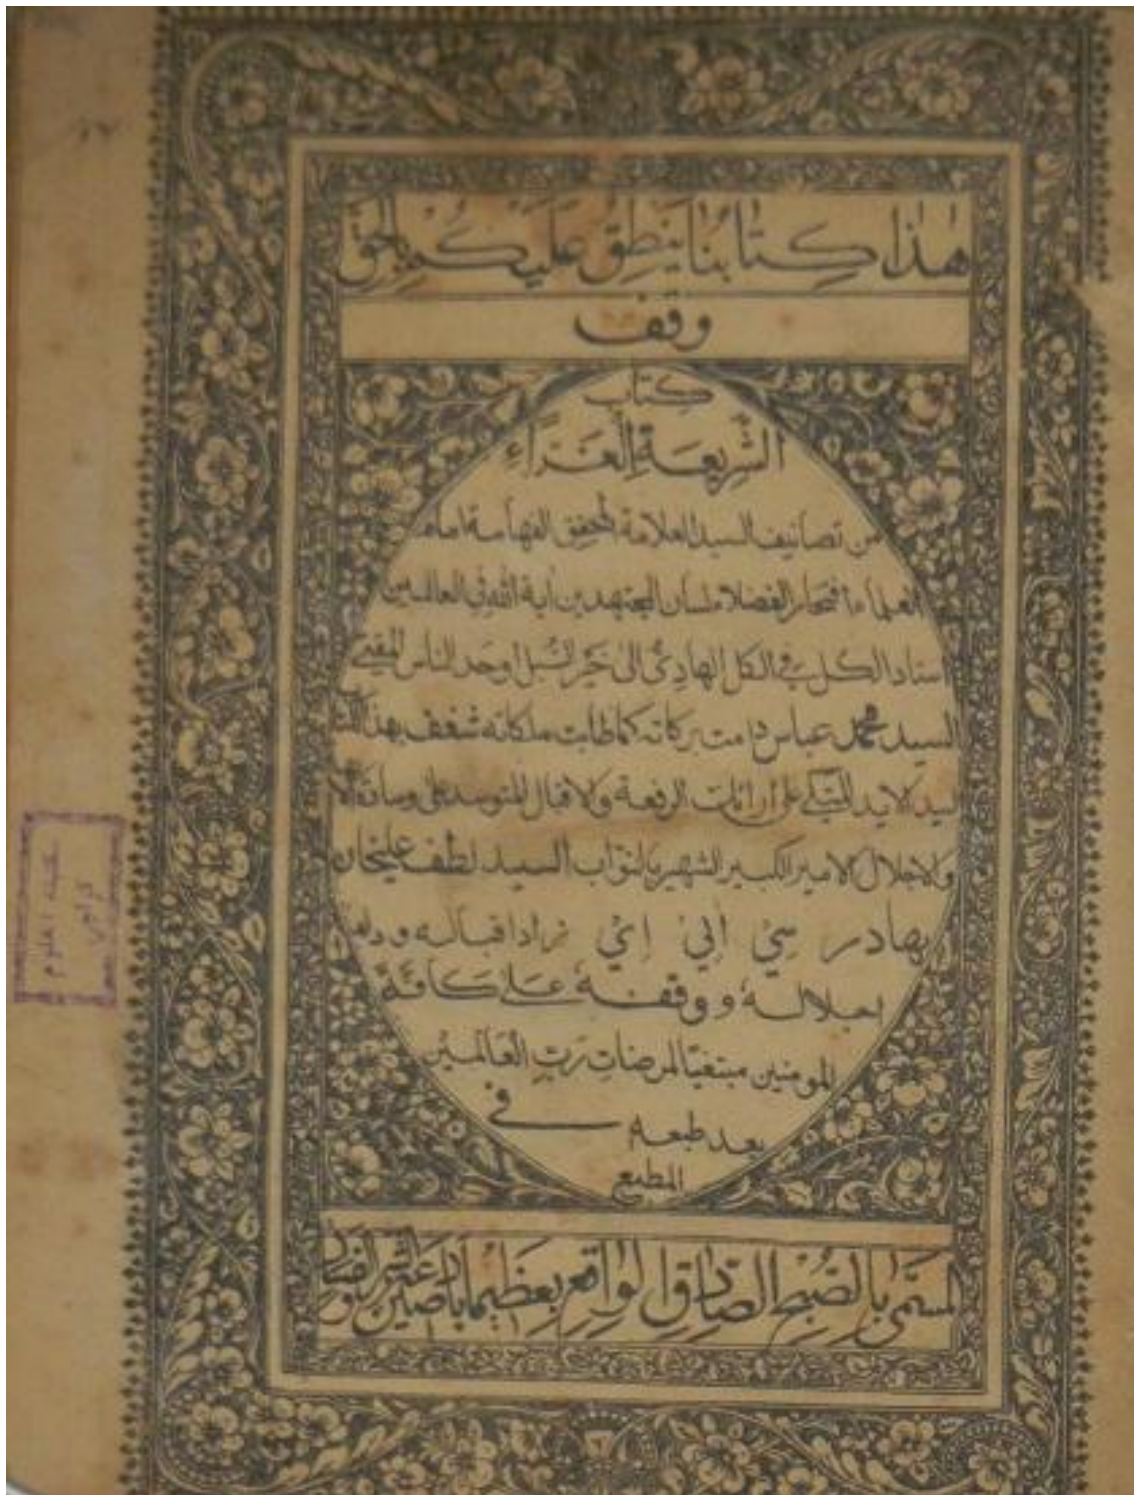 هٰذا كِتابُنا يَنطِقُ عَلَيكُم بِالحَقِّ
وقف
كتاب
الشريعة الغراء
من تصانيف السيد العلامة المحقق الفهامة امام
العلماء افتخار الفضلاء لسان المجتهدين اية الله في العالمين
استاد الكل في الكل الهادي الى خير السبل اوحد الناس المفتي
السيد محمد عباس دامت بركاته كما طابت ملكاته شغف بهذا
السيد الايد المتكي على الرفعة والاقبال المتوسد على وسادة
والاجلال الامير الكبير الشهير بالنواب السيد لطف عليخان
بهادر سي ائي اي زاد اقباله و دام
اجلاله و وقفه على كافة
المومنين مبتغيا لمرضات رب العالمين
بعد طبعه في
المطبع
المسمى بالصبح الصادق الواقع بعظيماباد صين عن الشر والفساد